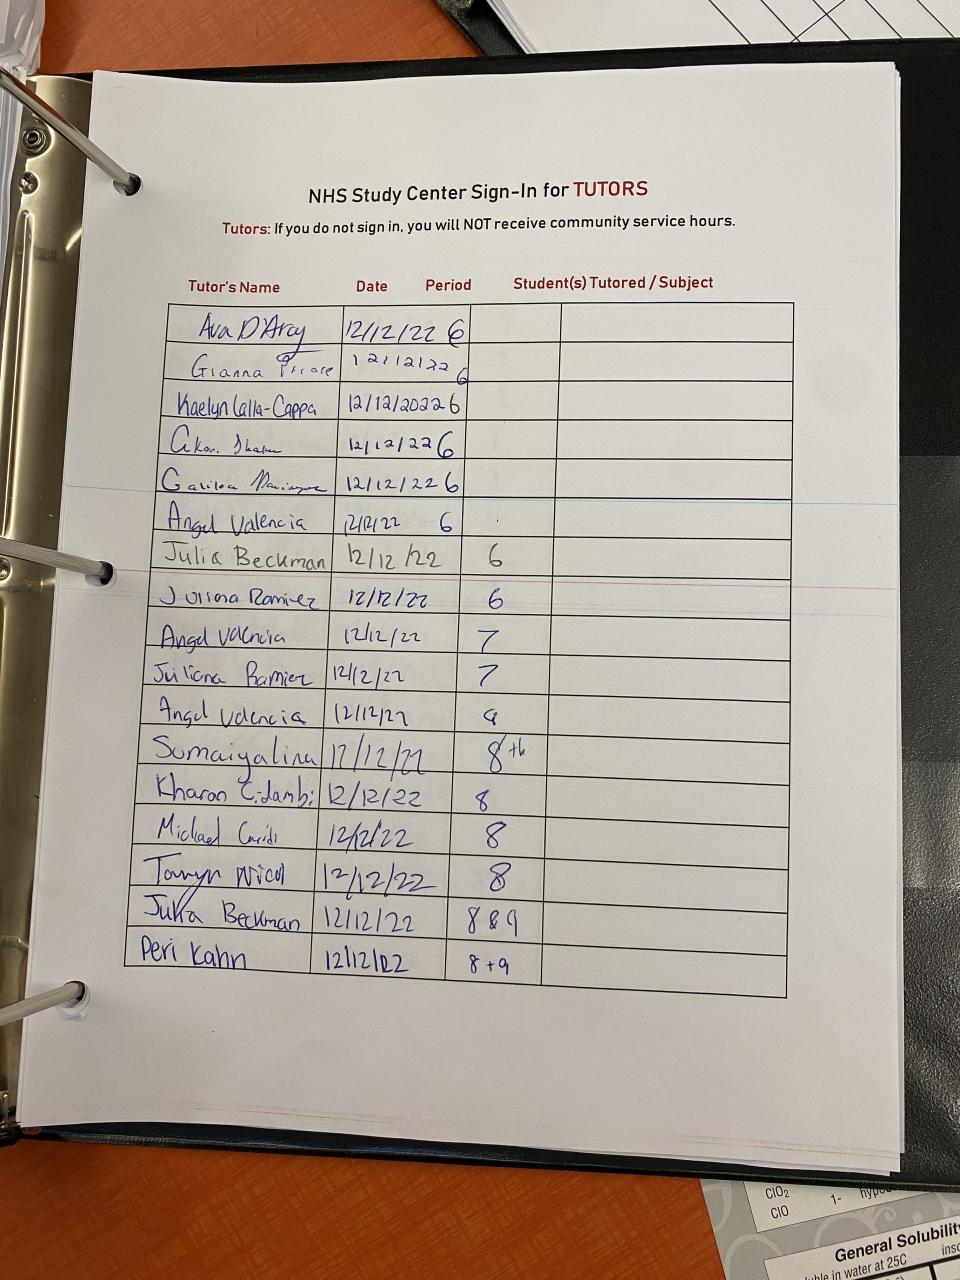 NHS Study Center Sign-In for TUTORS
Tutors: If you do not sign in, you will NOT receive community service hours.
Tutor's Name Date Period Student(s) Tutored / Subject
Ava D'Arcy 12/12/22 6
Gianna 12/12/22 6
Kaelyn Calla-Cappa 12/12/2022 6
12/12/22 6
12/12/22 6
Angel Valencia 12/12/22 6
Julia Beckman 12/12/22 6
Juliana Ramirez 12/12/22 6
Angel Valencia 12/12/22 7
Juliana Ramirez 12/12/22 7
Angel Valencia 12/12/22
Sumaiyalina 12/12/22 8th
Kharan Cidambi 12/12/22 8
Michael 12/12/22 8
Taryn Nicol 12/12/22 8
Julia Beckman 12/12/22 8 & 9
Peri Kahn 12/12/22 8 + 9
ClO2 1-
ClO
General Solubility
in water at 25C